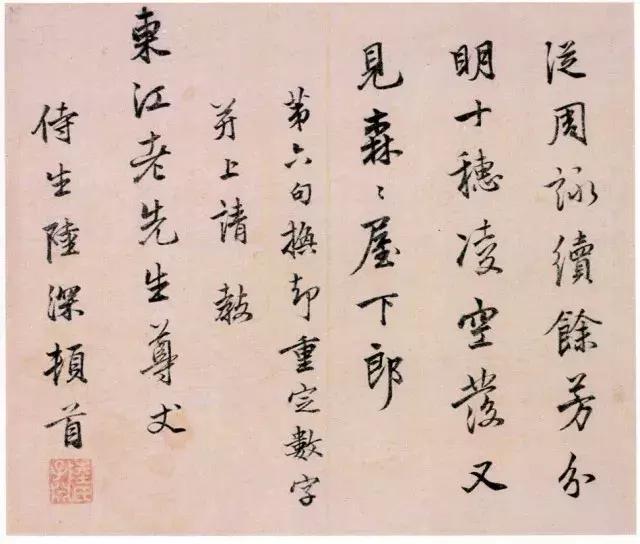 從周詠續餘芳分
明十穗凌空發又
見森〻屋下郎
第六句撫却重定數字
并上請教
東江老先生尊丈
侍生陸深頓首